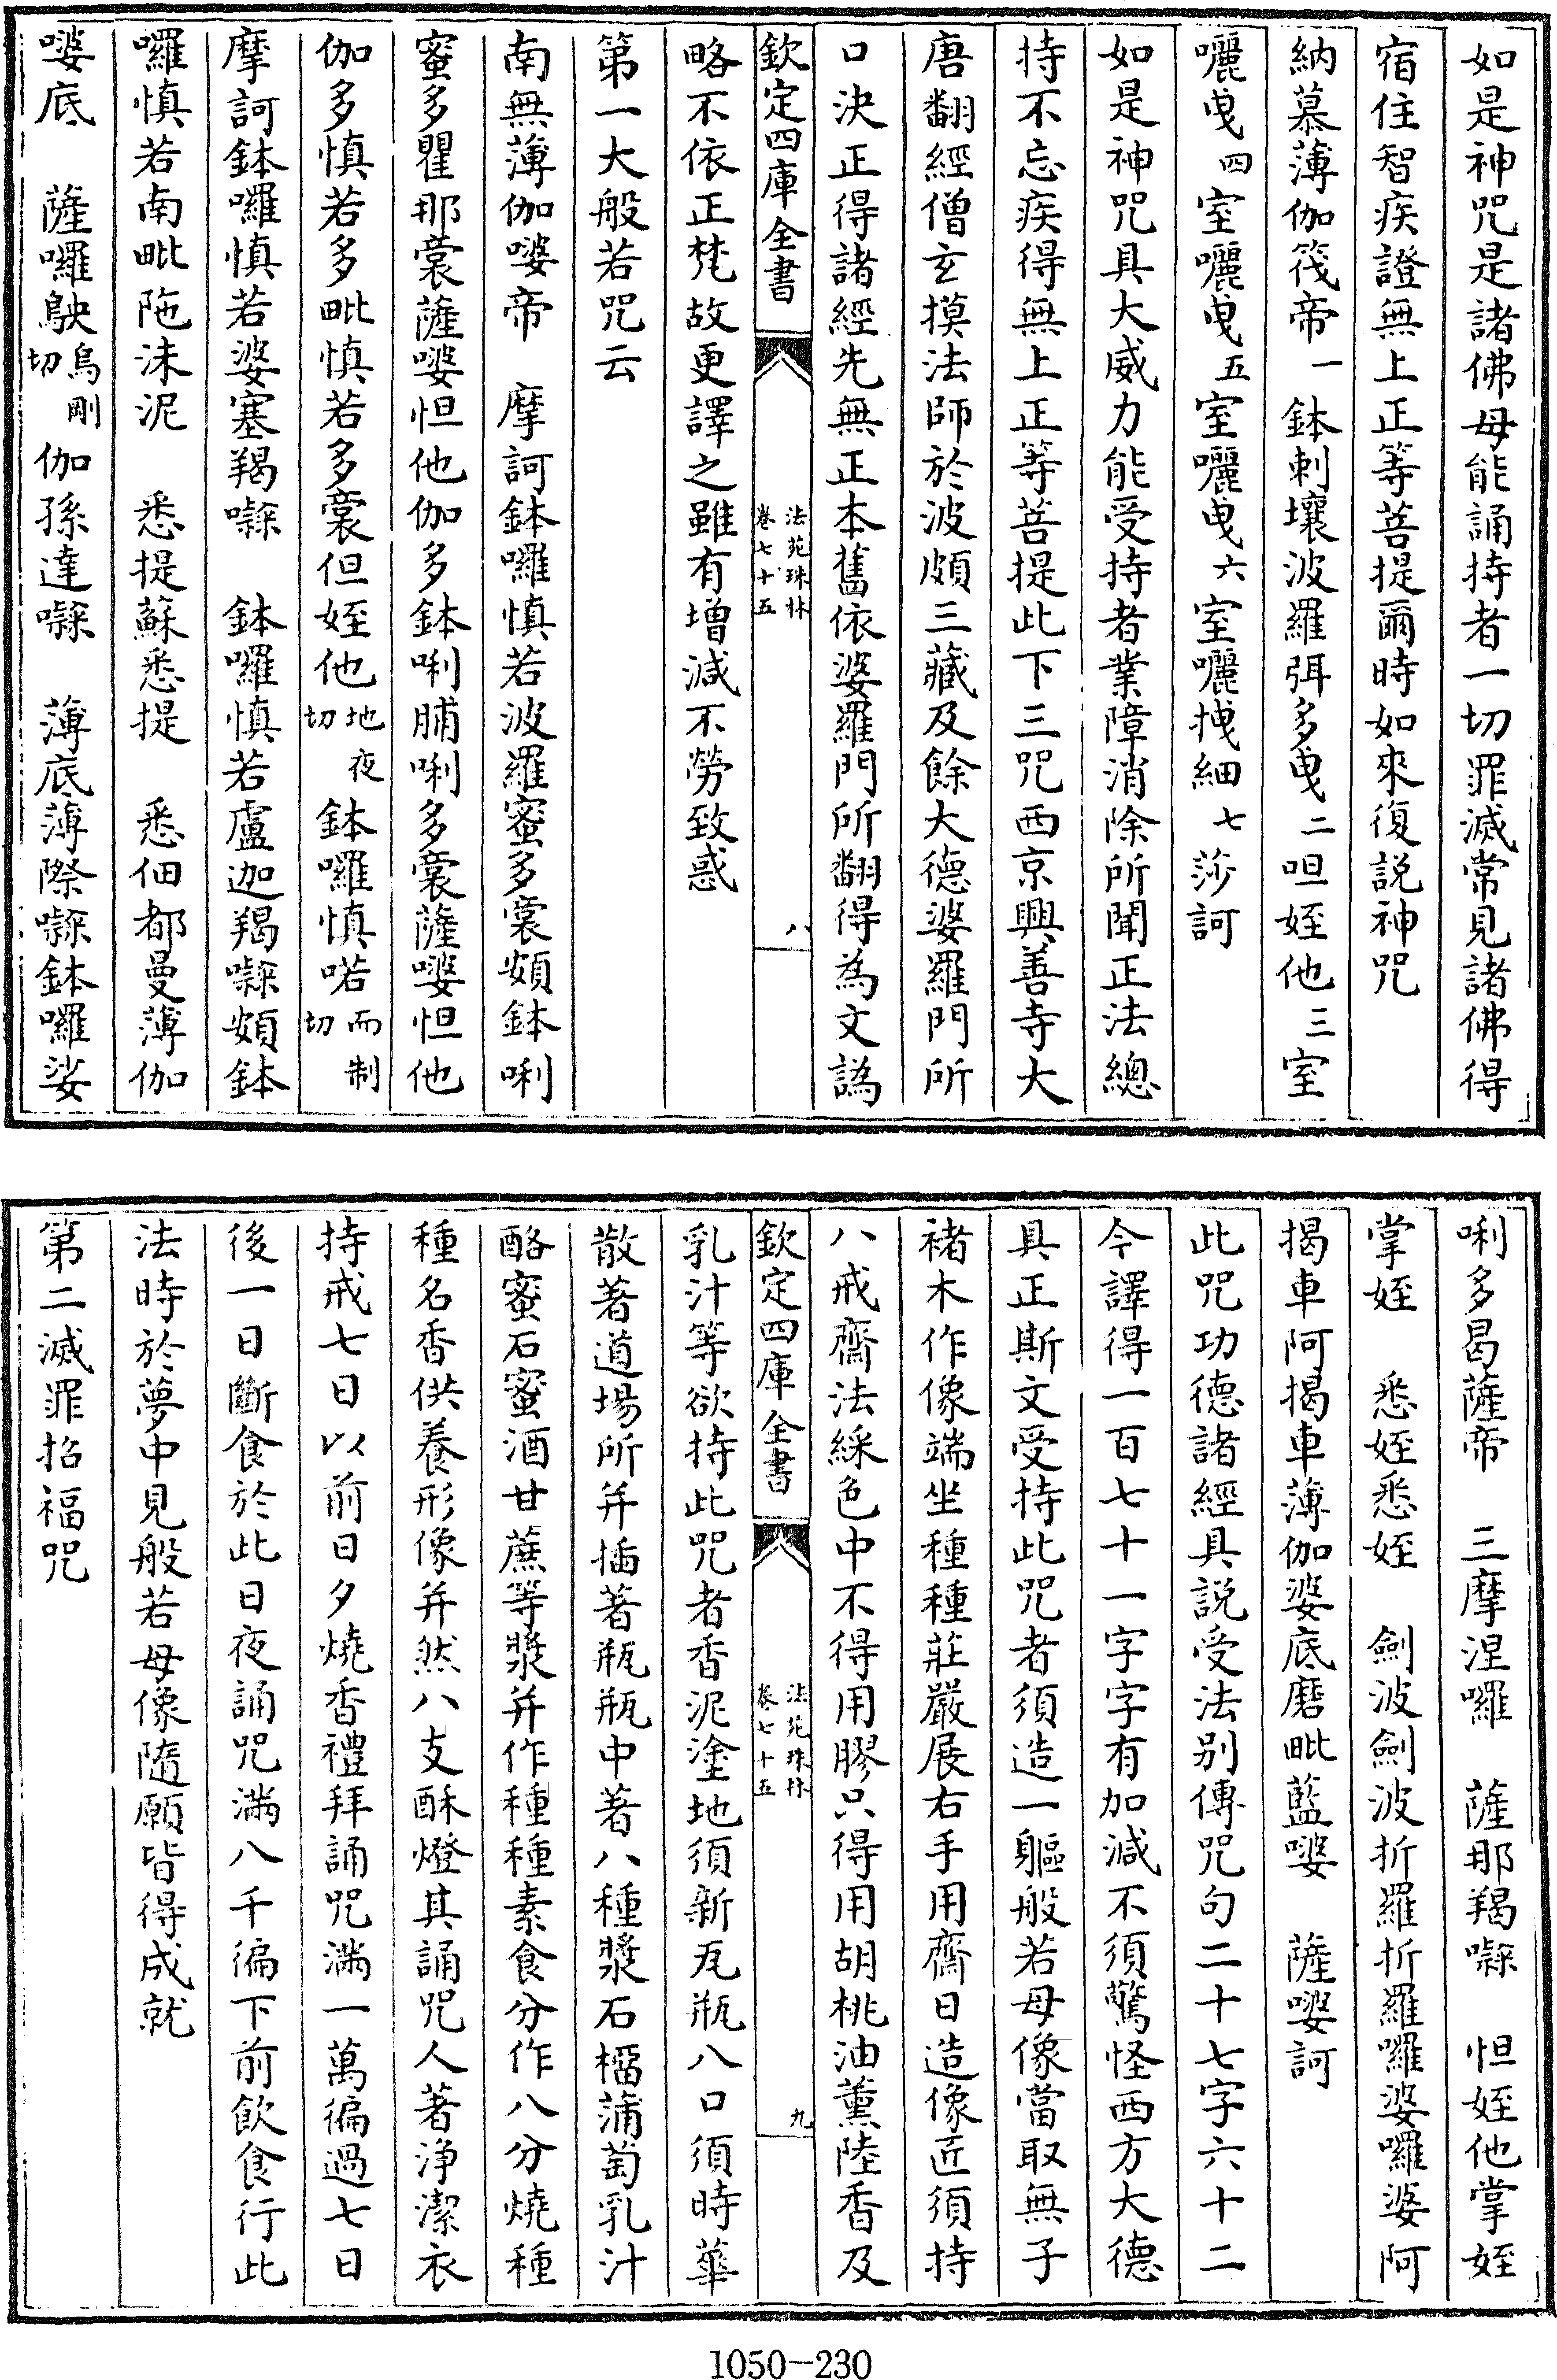 如是神咒是諸佛母能誦持者一切罪滅常見諸佛得
宿住智疾證無上正等菩提爾時如來復説神咒
納慕薄伽筏帝一　鉢剌壤波羅弭多曵二呾姪他三室
囇曵四室囇曵五室囇曵六室囇拽細七莎訶
如是神咒具大威力能受持者業障消除所聞正法總
持不忘疾得無上正等菩提此下三咒西京興善寺大
唐翻經僧玄摸法師於波頗三藏及餘大德婆羅門所
口決正得諸經先無正本舊依婆羅門所翻得為文譌
欽定四庫全書　法苑珠林卷七十五　八
略不依正梵故更譯之雖有增減不勞致惑
第一大般若咒云
南無薄伽嘙帝　摩訶鉢囉慎若波羅蜜多裳頞鉢唎
蜜多瞿那裳薩嘙怛他伽多鉢唎脯唎多裳薩嘙怛他
伽多慎若多毗慎若多裳但姪他地夜切鉢囉慎喏而制切
摩訶鉢囉慎若婆塞羯㗚　鉢囉慎若盧迦羯㗚頞鉢
囉慎若南毗陁沬泥　悉提蘇悉提　悉佃都曼薄伽
嘙底　薩囉鴥烏剛切伽孫達㗚　薄底薄際㗚鉢囉娑
唎多曷薩帝　三摩涅囉　薩那羯㗚　怛姪他掌姪
掌姪　悉姪悉姪　劍波劍波折羅折羅囉婆囉婆阿
揭車阿揭車薄伽婆底磨毗藍嘙　薩嘙訶
此咒功德諸經具説受法别傳咒句二十七字六十二
今譯得一百七十一字字有加減不須驚怪西方大德
具正斯文受持此咒者須造一軀般若母像當取無子
楮木作像端坐種種莊嚴展右手用齋日造像匠須持
八戒齋法綵色中不得用膠只得用胡桃油薰陸香及
欽定四庫全書　法苑珠林卷七十五　九
乳汁等欲持此咒者香泥塗地須新瓦瓶八口須時華
散著道場所并插著瓶瓶中著八種漿石橊蒲萄乳汁
酪蜜石蜜酒甘蔗等漿并作種種素食分作八分燒種
種名香供養形像并然八支酥燈其誦咒人著淨潔衣
持戒七日以前日夕燒香禮拜誦咒滿一萬徧過七日
後一日斷食於此日夜誦咒滿八千徧下前飲食行此
法時於夢中見般若母像隨願皆得成就
第二滅罪招福咒
1050-230